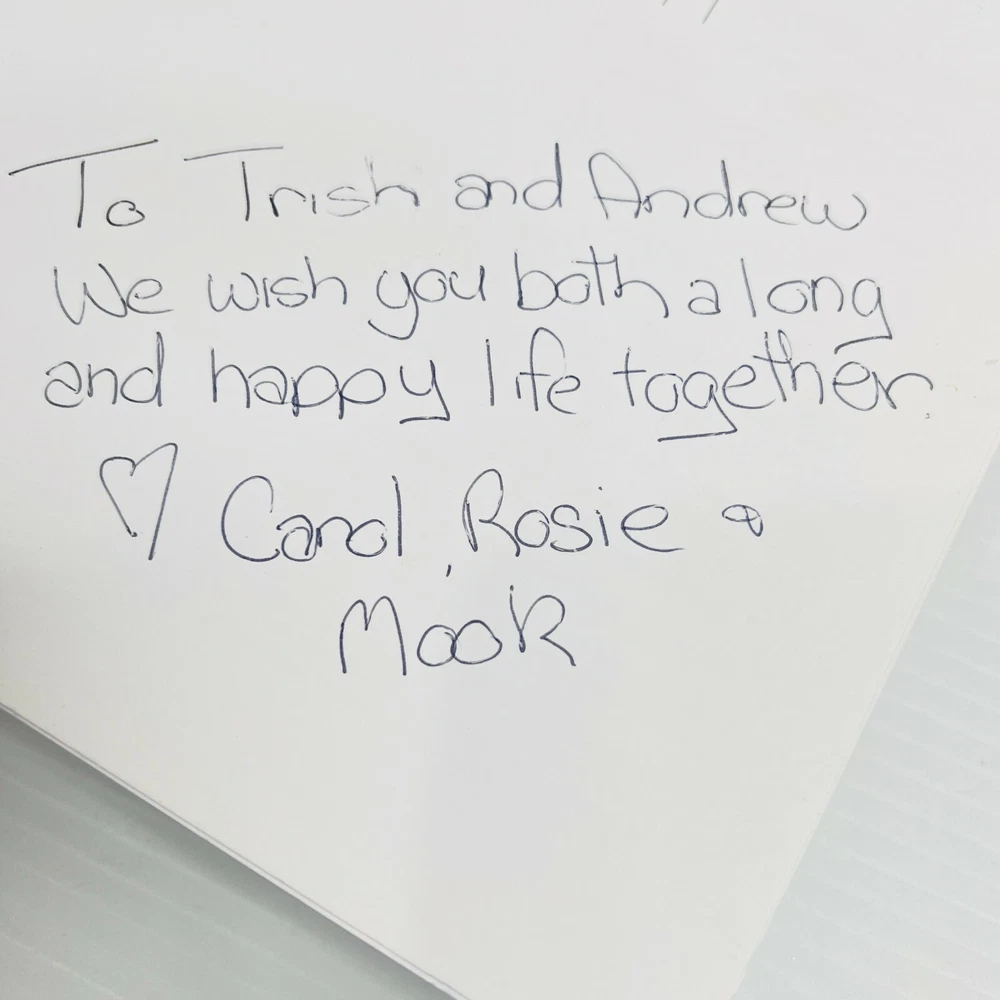 To Trish and Andrew
We wish you both a long
and happy life together.
♡ Carol, Rosie &
Mook